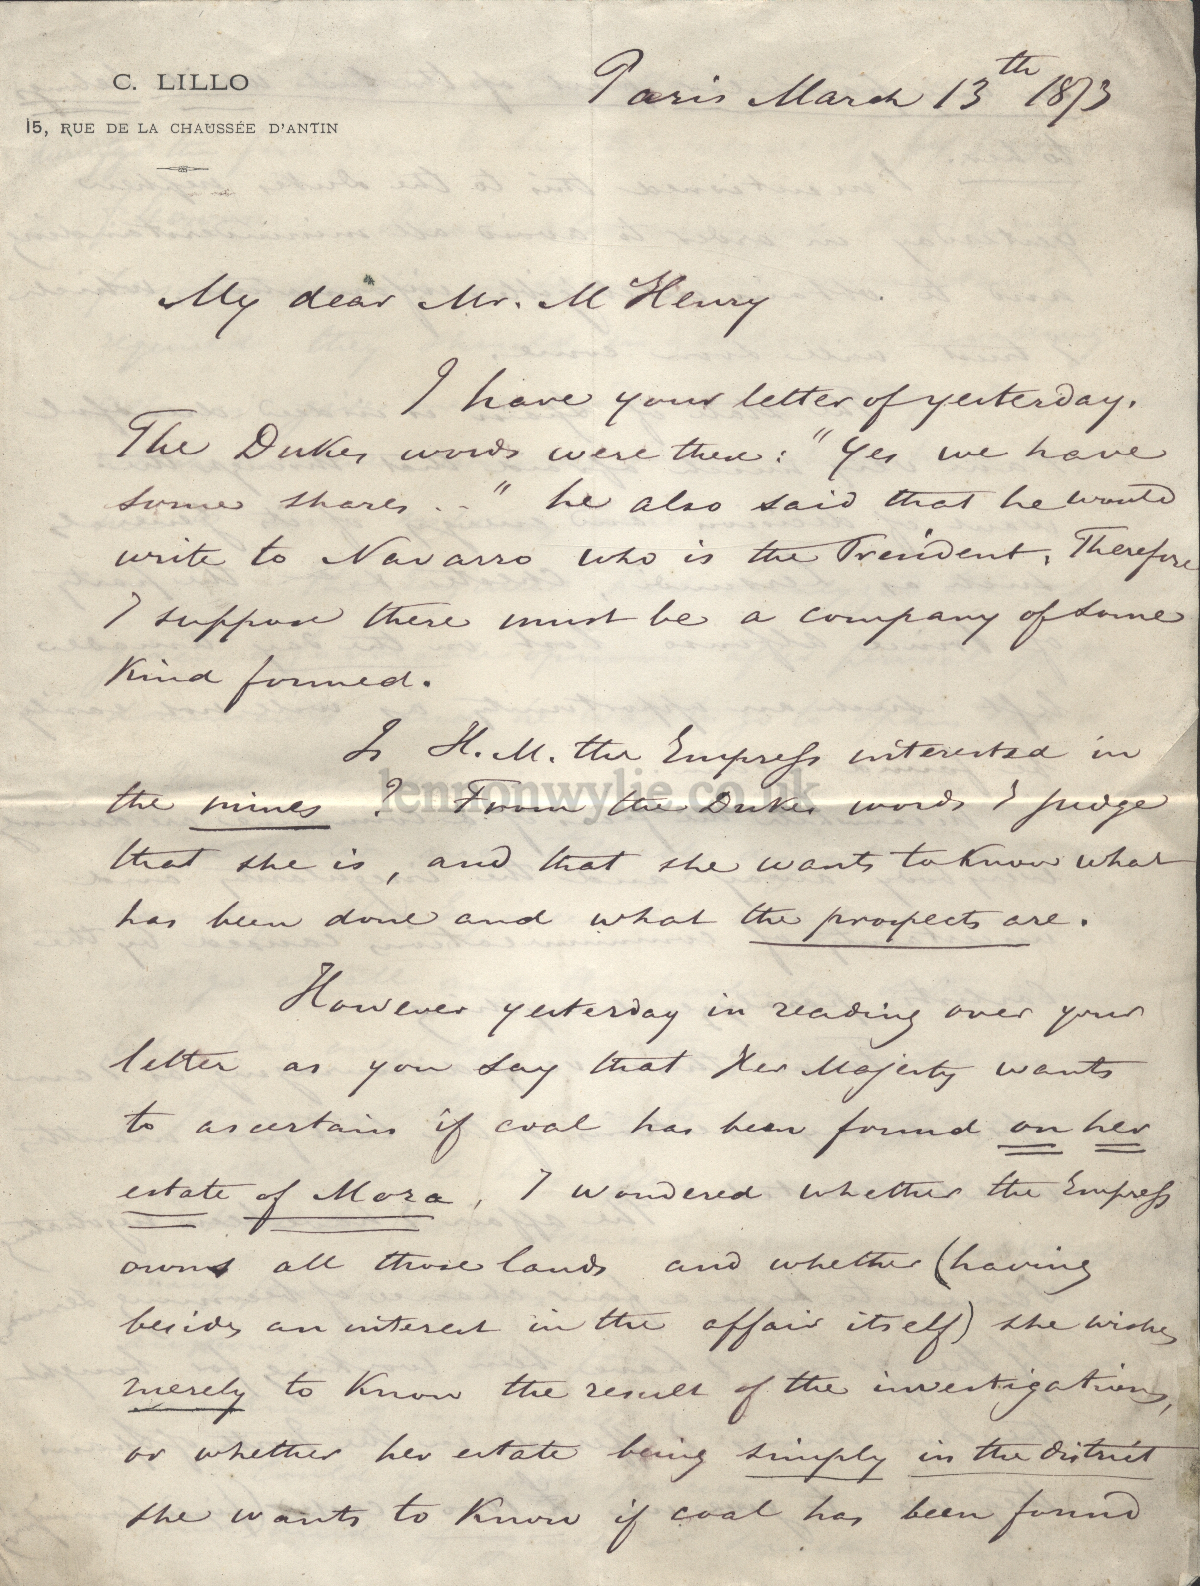 C. LILLO
15, RUE DE LA CHAUSSÉE D'ANTIN
Paris March 13th 1873
My dear Mr. McHenry
I have your letter of yesterday.
The Dukes words were these: "Yes we have
some shares .. " he also said that he would
write to Navarro who is the President. Therefore
I suppose there must be a company of some
kind formed.
Is H. M. the Empress interested in
the mines ? From the Dukes words I judge
that she is, and that she wants to know what
has been done and what the prospects are.
However yesterday in reading over your
letter as you say that Her Majesty wants
to ascertain if coal has been found on her
estate of Mora, I wondered whether the Empress
owns all those lands and whether (having
besides an interest in the affair itself) she wishes
merely to know the result of the investigations,
or whether her estate being simply in the district
she wants to know if coal has been found
lennonwylie.co.uk